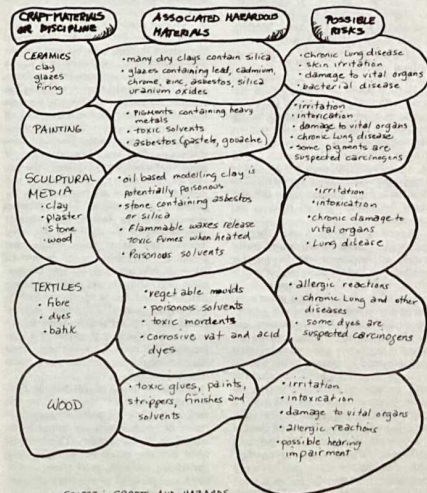 CRAFT MATERIALS
OR DISCIPLINE
ASSOCIATED HAZARDOUS
MATERIALS
POSSIBLE
RISKS
CERAMICS
clay
glazes
firing
• many dry clays contain silica
• glazes containing lead, cadmium,
chrome, zinc, asbestos, silica
uranium oxides
• chronic Lung disease
• skin irritation
• damage to vital organs
• bacterial disease
PAINTING
• PIGMENTS containing heavy
metals
• toxic solvents
• asbestos (pastels, gouache)
• irritation
• intoxication
• damage to vital organs
• chronic Lung disease
• some pigments are
suspected carcinogens
SCULPTURAL
MEDIA
• clay
• plaster
• stone
• wood
• oil based modelling clay is
potentially poisonous
• stone containing asbestos
or silica
• Flammable waxes release
toxic fumes when heated
• Poisonous solvents
• irritation
• intoxication
• chronic damage to
vital organs
• Lung disease
TEXTILES
• fibre
• dyes
• batik
• vegetable moulds
• poisonous solvents
• toxic mordents
• corrosive vat and acid
dyes
• allergic reactions
• chronic Lung and other
diseases
• some dyes are
suspected carcinogens
WOOD
• toxic glues, paints,
strippers, finishes and
solvents
• irritation
• intoxication
• damage to vital organs
• allergic reactions
• possible hearing
impairment
CRAFTS AND HAZARDS